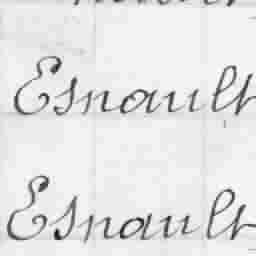 Esnault
Esnault